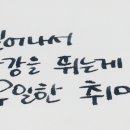 일어나서
한강을 뛰는게
유일한 취미